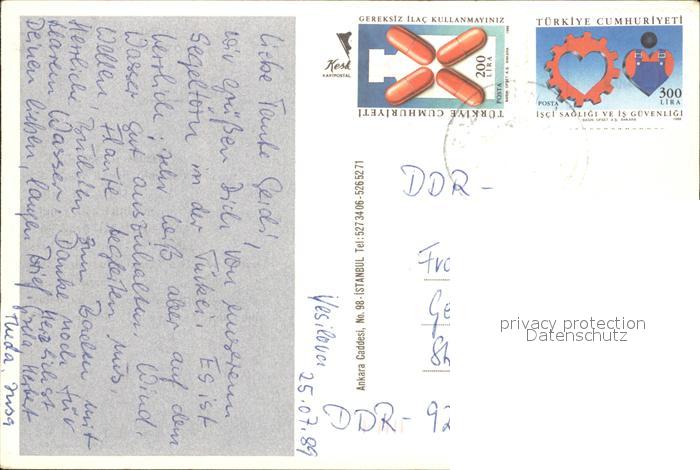 Liebe Tante Gerdi!
wir grüßen Dich von unserem
Segeltörn in der Türkei. Es ist
herrlich, sehr heiß aber auf dem
Wasser gut auszuhalten. Wind,
Wellen, Flaute begleiten uns.
Herrliche Buchten zum Baden mit
klarem Wasser. Danke noch für
Deinen lieben, langen Brief. Herzlichst
Theda, Insa
Yesilova
25.07.89
Kesk
KARTPOSTAL
Ankara Caddesi, No. 98-İSTANBUL Tel: 5273406-5265271
GEREKSİZ İLAÇ KULLANMAYINIZ
200
LİRA
POSTA
TÜRKİYE CUMHURİYETİ
TÜRKİYE CUMHURİYETİ
POSTA
300
LİRA
İŞÇİ SAĞLIĞI VE İŞ GÜVENLİĞİ
DDR-
Fra
Ge
privacy protection
Datenschutz
DDR- 92